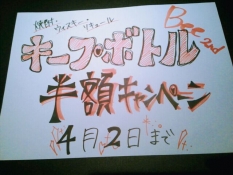 焼酎・ウィスキー・リキュール
Bee 2nd
キープ・ボトル
半額キャンペーン
4月2日まで